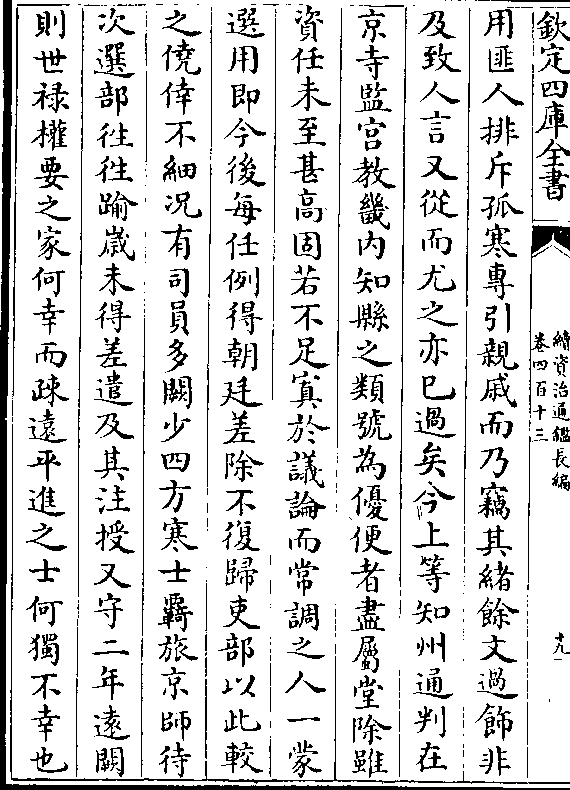 欽定四庫全書
續資治通鑑長編
卷四百十三
十九
用匪人排斥孤寒専引親戚而乃竊其緒餘文過飾非
及致人言又從而尤之亦已過矣今上等知州通判在
京寺監宫教畿内知縣之類號為優便者盡屬堂除雖
資任未至甚高固若不足寘於議論而常調之人一蒙
選用即今後每任例得朝廷差除不復歸吏部以此較
之僥倖不細况有司員多闕少四方寒士羇旅京師待
次選部徃徃踰嵗未得差遣及其注授又守二年逺闕
則世禄權要之家何幸而疎逺平進之士何獨不幸也